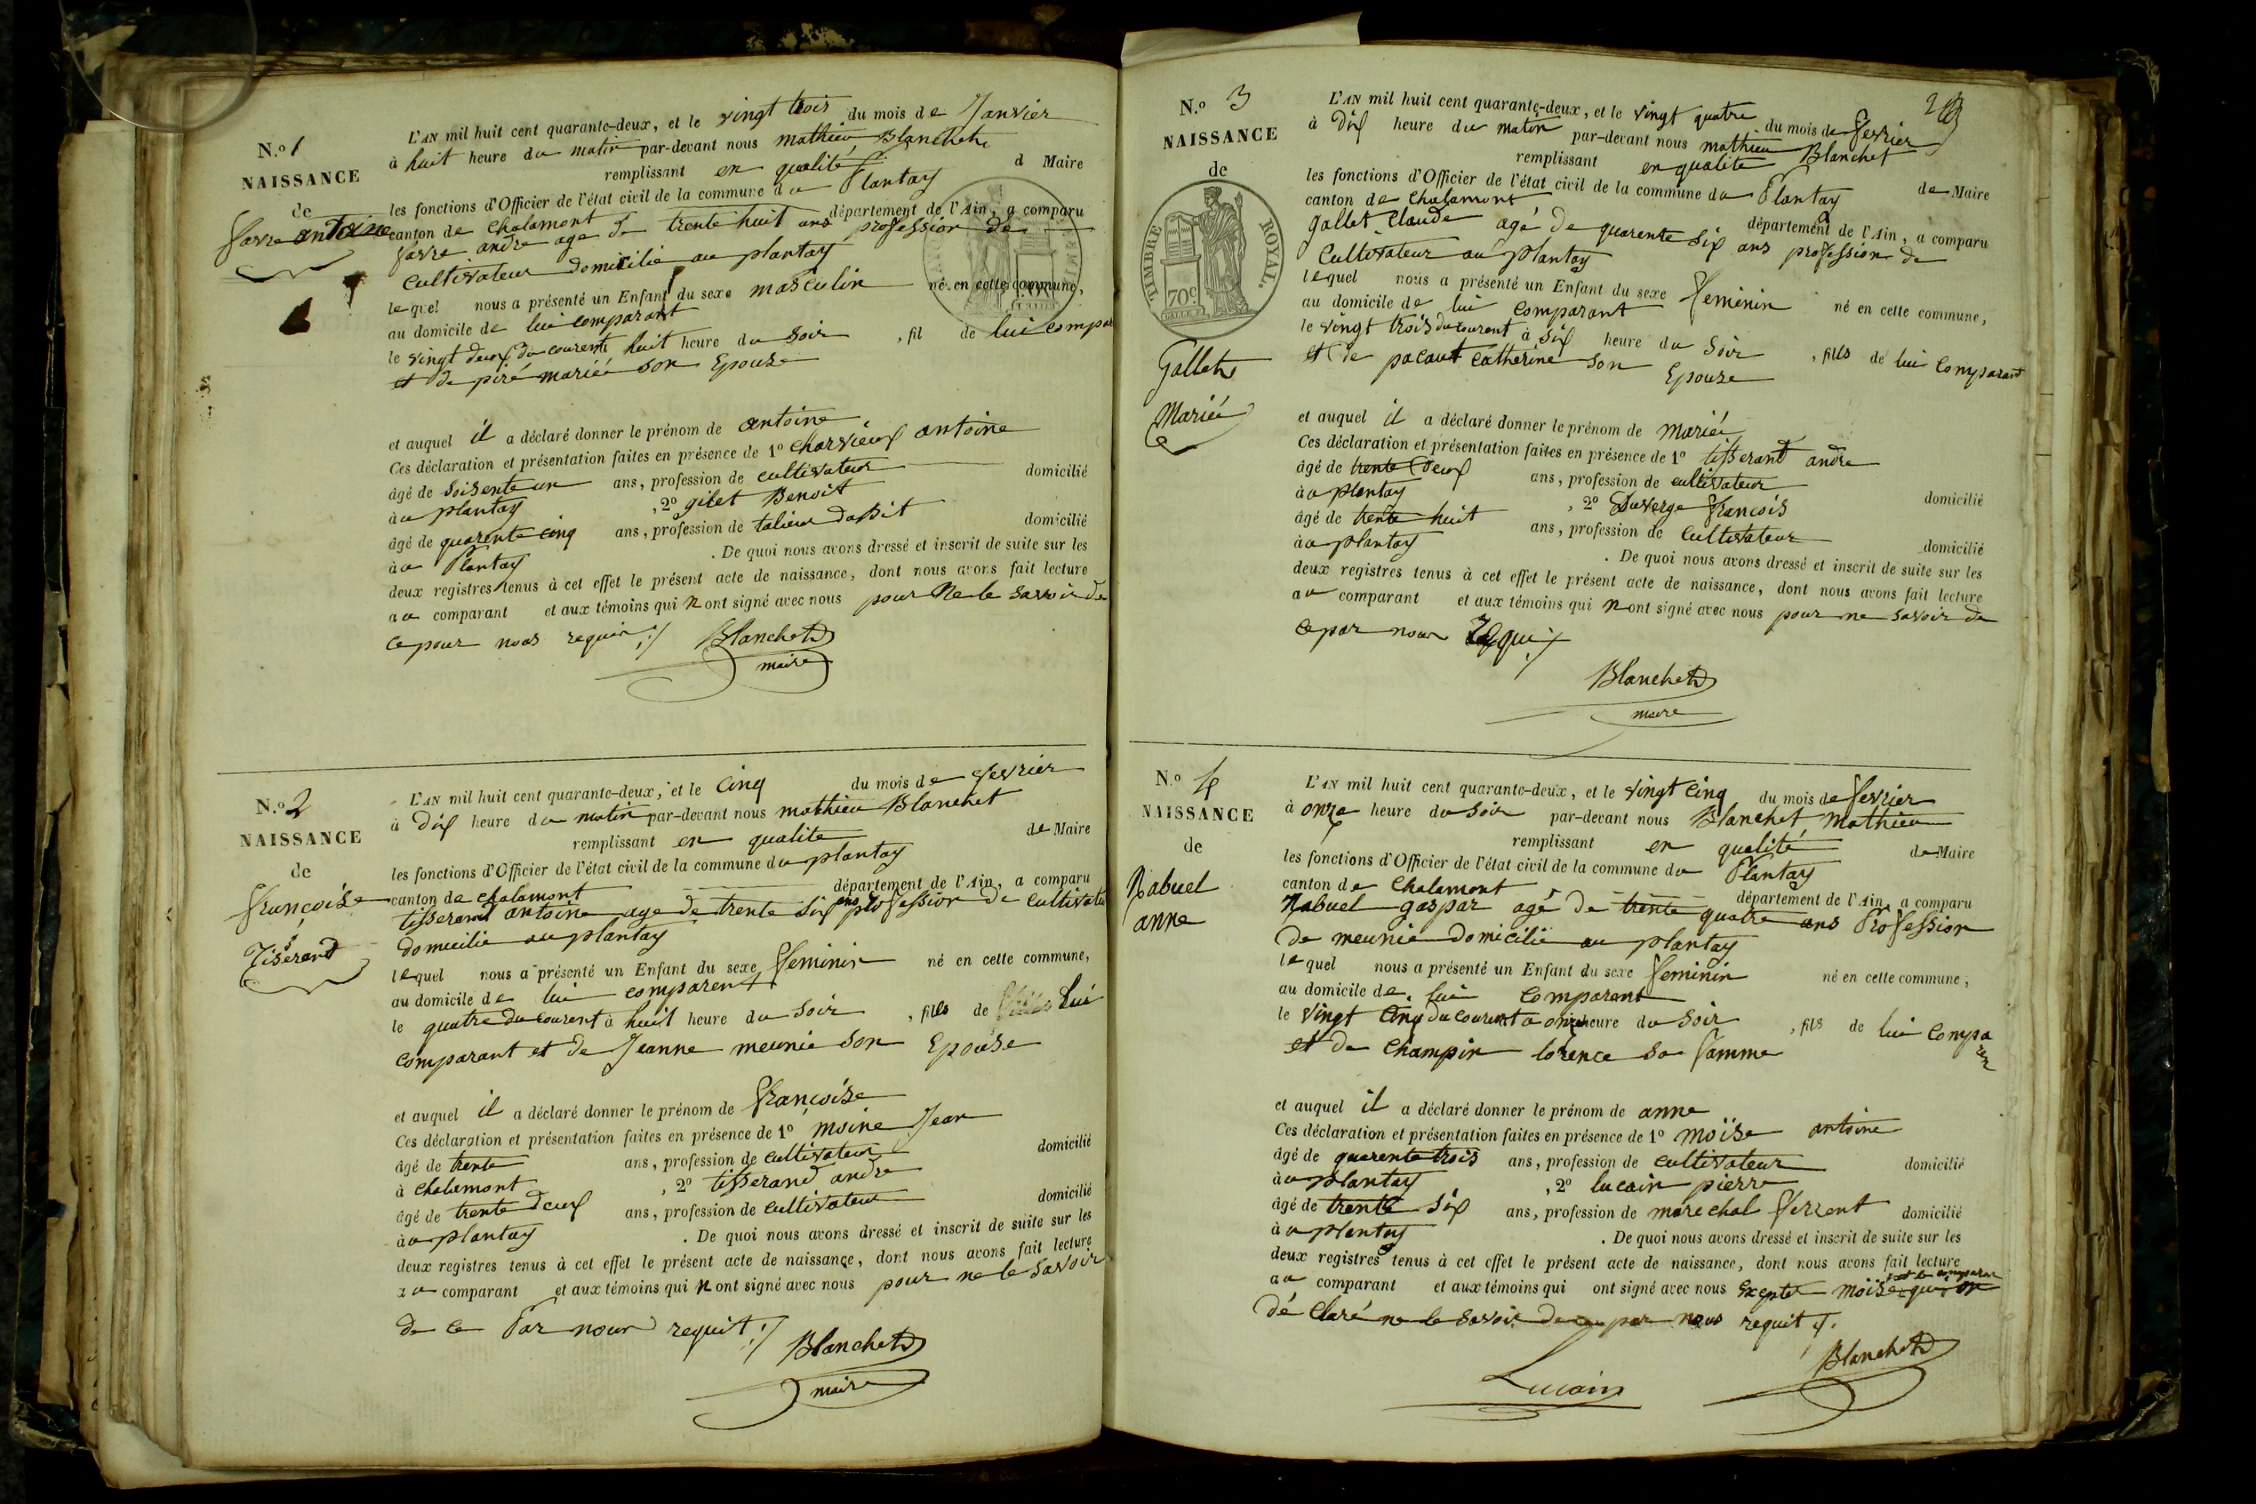 N.º 1
NAISSANCE
de
favre antoine
L'AN mil huit cent quarante-deux, et le vingt trois du mois de Janvier
à huit heure du matin par-devant nous mathieu Blanchet
remplissant en qualité d Maire
les fonctions d'Officier de l'état civil de la commune du Plantay
canton de chalamont département de l'Ain, a comparu
favre andre age de trente huit ans profession de
cultivateur domicilié au plantay
lequel nous a présenté un Enfant du sexe masculin né en cette commune,
au domicile de lui comparant
le vingt deux du courent huit heure du soir, fil de lui compar
et de piré mariée son Epouse
et auquel il a déclaré donner le prénom de antoine
Ces déclaration et présentation faites en présence de 1º charvieux antoine
âgé de soisente un ans, profession de cultivateur domicilié
à u plantay, 2º gilet Benoit
âgé de quarente cinq ans, profession de talieur dabit domicilié
à u Plantay. De quoi nous avons dressé et inscrit de suite sur les
deux registres tenus à cet effet le présent acte de naissance, dont nous avons fait lecture
au comparant et aux témoins qui n ont signé avec nous pour ne le savoir de
ce pour nous requir
Blanchet
maire
N.º 2
NAISSANCE
de
françoise
Tiserand
L'AN mil huit cent quarante-deux, et le cinq du mois de fevrier
à dix heure du matin par-devant nous mathieu Blanchet
remplissant en qualite de Maire
les fonctions d'Officier de l'état civil de la commune du plantay
canton de chalamont département de l'Ain, a comparu
tisserand antoine age de trente six ans profession de cultivate
domicilié au plantay
lequel nous a présenté un Enfant du sexe feminin né en cette commune,
au domicile de lui comparent
le quatre du courent à huit heure du soir, fills de lui
comparant et de Jeanne meunie son Epouse
et auquel il a déclaré donner le prénom de françoise
Ces déclaration et présentation faites en présence de 1º moine Jean
âgé de trente ans, profession de cultivateur domicilié
à chalamont, 2º tisserand andre
âgé de trente deux ans, profession de cultivateur domicilié
à u plantay. De quoi nous avons dressé et inscrit de suite sur les
deux registres tenus à cet effet le présent acte de naissance, dont nous avons fait lecture
au comparant et aux témoins qui n ont signé avec nous pour ne le savoir
de ce Par nour requit
Blanchet
maire
N.º 3
NAISSANCE
de
TIMBRE ROYAL.
70c
Gallet
Mariée
L'AN mil huit cent quarante-deux, et le vingt quatre du mois de fevrier
à dix heure du matin par-devant nous mathieu Blanchet
remplissant en qualite de Maire
les fonctions d'Officier de l'état civil de la commune du Plantay
canton de chalamont département de l'Ain, a comparu
gallet claude agé de quarente six ans profession de
cultivateur au plantay
lequel nous a présenté un Enfant du sexe feminin né en cette commune,
au domicile de lui comparant
le vingt trois du courent à six heure du soir, fills de lui comparant
et de pacaut catherine son Epouse
et auquel il a déclaré donner le prénom de mariée
Ces déclaration et présentation faites en présence de 1º tisserand andre
âgé de trente deux ans, profession de cultivateur domicilié
à u plantay, 2º Duverge francois
âgé de trente huit ans, profession de cultivateur domicilié
à u plantay. De quoi nous avons dressé et inscrit de suite sur les
deux registres tenus à cet effet le présent acte de naissance, dont nous avons fait lecture
au comparant et aux témoins qui n ont signé avec nous pour ne savoir de
ce par nour requi
Blanchet
maire
N.º 4
NAISSANCE
de
Nabuel
anne
L'AN mil huit cent quarante-deux, et le vingt cinq du mois de fevrier
à onze heure du soir par-devant nous Blanchet mathieu
remplissant en qualité de Maire
les fonctions d'Officier de l'état civil de la commune du Plantay
canton de chalamont département de l'Ain, a comparu
Nabuel gaspar agé de trente quatre ans Profession
de meunie domicilié au plantay
lequel nous a présenté un Enfant du sexe feminin né en cette commune,
au domicile de lui comparent
le vingt cinq du courent a onze heure du soir, fils de lui comparent
et de champin lorence sa famme
et auquel il a déclaré donner le prénom de anne
Ces déclaration et présentation faites en présence de 1º moïse antoine
âgé de quarente trois ans, profession de cultivateur domicilié
à u plantay, 2º lucain pierre
âgé de trente six ans, profession de marechal ferrent domicilié
à u plantay. De quoi nous avons dressé et inscrit de suite sur les
deux registres tenus à cet effet le présent acte de naissance, dont nous avons fait lecture
au comparant et aux témoins qui ont signé avec nous exepte moïse et le comparan qui on
dé claré ne le savoir de ce par nous requit
Lucain
Blanchet